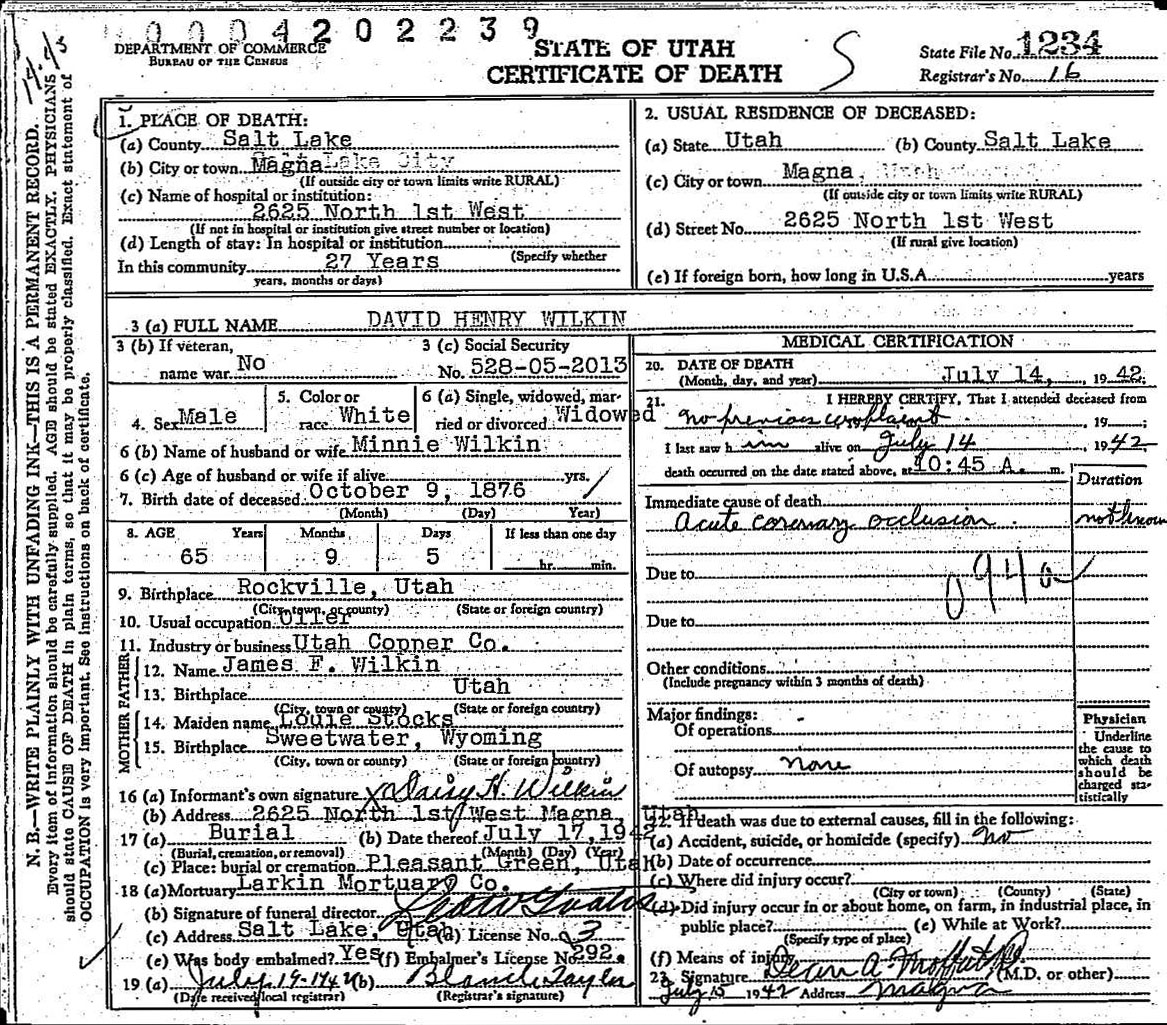 0004202239
DEPARTMENT OF COMMERCE
BUREAU OF THE CENSUS
STATE OF UTAH
CERTIFICATE OF DEATH
S
State File No. 1234
Registrar's No. 16
N. B.—WRITE PLAINLY WITH UNFADING INK—THIS IS A PERMANENT RECORD.
Every item of information should be carefully supplied. AGE should be stated EXACTLY. PHYSICIANS
should state CAUSE OF DEATH in plain terms, so that it may be properly classified. Exact statement of
OCCUPATION is very important. See instructions on back of certificate.
1. PLACE OF DEATH:
(a) County Salt Lake
(b) City or town Magna
(If outside city or town limits write RURAL)
(c) Name of hospital or institution:
2625 North 1st West
(If not in hospital or institution give street number or location)
(d) Length of stay: In hospital or institution
(Specify whether
In this community 27 Years
years, months or days)
2. USUAL RESIDENCE OF DECEASED:
(a) State Utah (b) County Salt Lake
(c) City or town Magna,
(If outside city or town limits write RURAL)
(d) Street No. 2625 North 1st West
(If rural give location)
(e) If foreign born, how long in U.S.A. years
3 (a) FULL NAME DAVID HENRY WILKIN
3 (b) If veteran, name war No
3 (c) Social Security No. 528-05-2013
4. Sex Male
5. Color or race White
6 (a) Single, widowed, married or divorced Widowed
6 (b) Name of husband or wife Minnie Wilkin
6 (c) Age of husband or wife if alive yrs.
7. Birth date of deceased October 9, 1876
(Month) (Day) Year)
8. AGE Years Months Days If less than one day
65 9 5 hr. min.
9. Birthplace Rockville, Utah
(City, town, or county) (State or foreign country)
10. Usual occupation Oiler
11. Industry or business Utah Copper Co.
FATHER
12. Name James F. Wilkin
13. Birthplace Utah
(City, town or county) (State or foreign country)
MOTHER
14. Maiden name Louie Stocks
15. Birthplace Sweetwater, Wyoming
(City, town or county) (State or foreign country)
16 (a) Informant's own signature x Daisy H. Wilkin
(b) Address 2625 North 1st West Magna, Utah
17 (a) Burial (b) Date thereof July 17, 1942
(Burial, cremation, or removal) (Month) (Day) (Year)
(c) Place: burial or cremation Pleasant Green, Utah
18 (a) Mortuary Larkin Mortuary Co.
(b) Signature of funeral director
(c) Address Salt Lake, Utah (d) License No. 23
(e) Was body embalmed? Yes (f) Embalmer's License No. 292.
19 (a) July 19-1942 (b) Blanch Taylor
(Date received local registrar) (Registrar's signature)
MEDICAL CERTIFICATION
20. DATE OF DEATH
(Month, day, and year) July 14, 1942;
21. I HEREBY CERTIFY, That I attended deceased from
no previous complaint, 19 ;
I last saw h im alive on July 14 1942
death occurred on the date stated above, at 10:45 A. m.
Duration
Immediate cause of death
Acute coronary occlusion. not known
Due to
094a
Due to
Other conditions
(Include pregnancy within 3 months of death)
Major findings:
Of operations -
Of autopsy none
Physician
Underline
the cause to
which death
should be
charged sta-
tistically
22. If death was due to external causes, fill in the following:
(a) Accident, suicide, or homicide (specify) No
(b) Date of occurrence
(c) Where did injury occur?
(City or town) (County) (State)
(d) Did injury occur in or about home, on farm, in industrial place, in
public place? (e) While at Work?
(Specify type of place)
(f) Means of injury
23. Signature Dean A. Moffat (M.D. or other)
July 15 1942 Address Magna